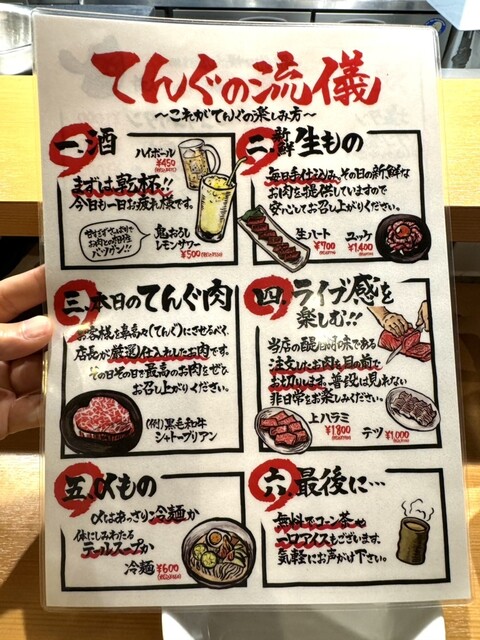 てんぐの流儀
〜これがてんぐの楽しみ方〜
一.酒
ハイボール
¥450
まずは乾杯!!
今日も一日お疲れ様です。
甘すぎずさっぱりで
お肉との相性
バツグン!!
鬼おろし
レモンサワー
¥500
二.新鮮生もの
毎日手仕込み、その日の新鮮な
お肉を提供していますので
安心してお召し上がりください。
生ハート
¥700
ユッケ
¥1,400
三.本日のてんぐ肉
お客様を鼻高々(てんぐ)にさせるべく、
店長が厳選仕入れしたお肉です。
その日その日で最高のお肉をぜひ
お召し上がりください。
(例)黒毛和牛
シャトーブリアン
四.ライブ感を
楽しむ!!
当店の醍醐味である
注文したお肉を目の前で
お切りします。普段は見れない
非日常をお楽しみください。
上ハラミ
¥1,800
テツ
¥1,000
五.〆もの
〆はあっさり冷麺か
体にしみわたる
テールスープか
冷麺 ¥600
六.最後に…
無料でコーン茶や
一口アイスもございます。
気軽にお声がけ下さい。